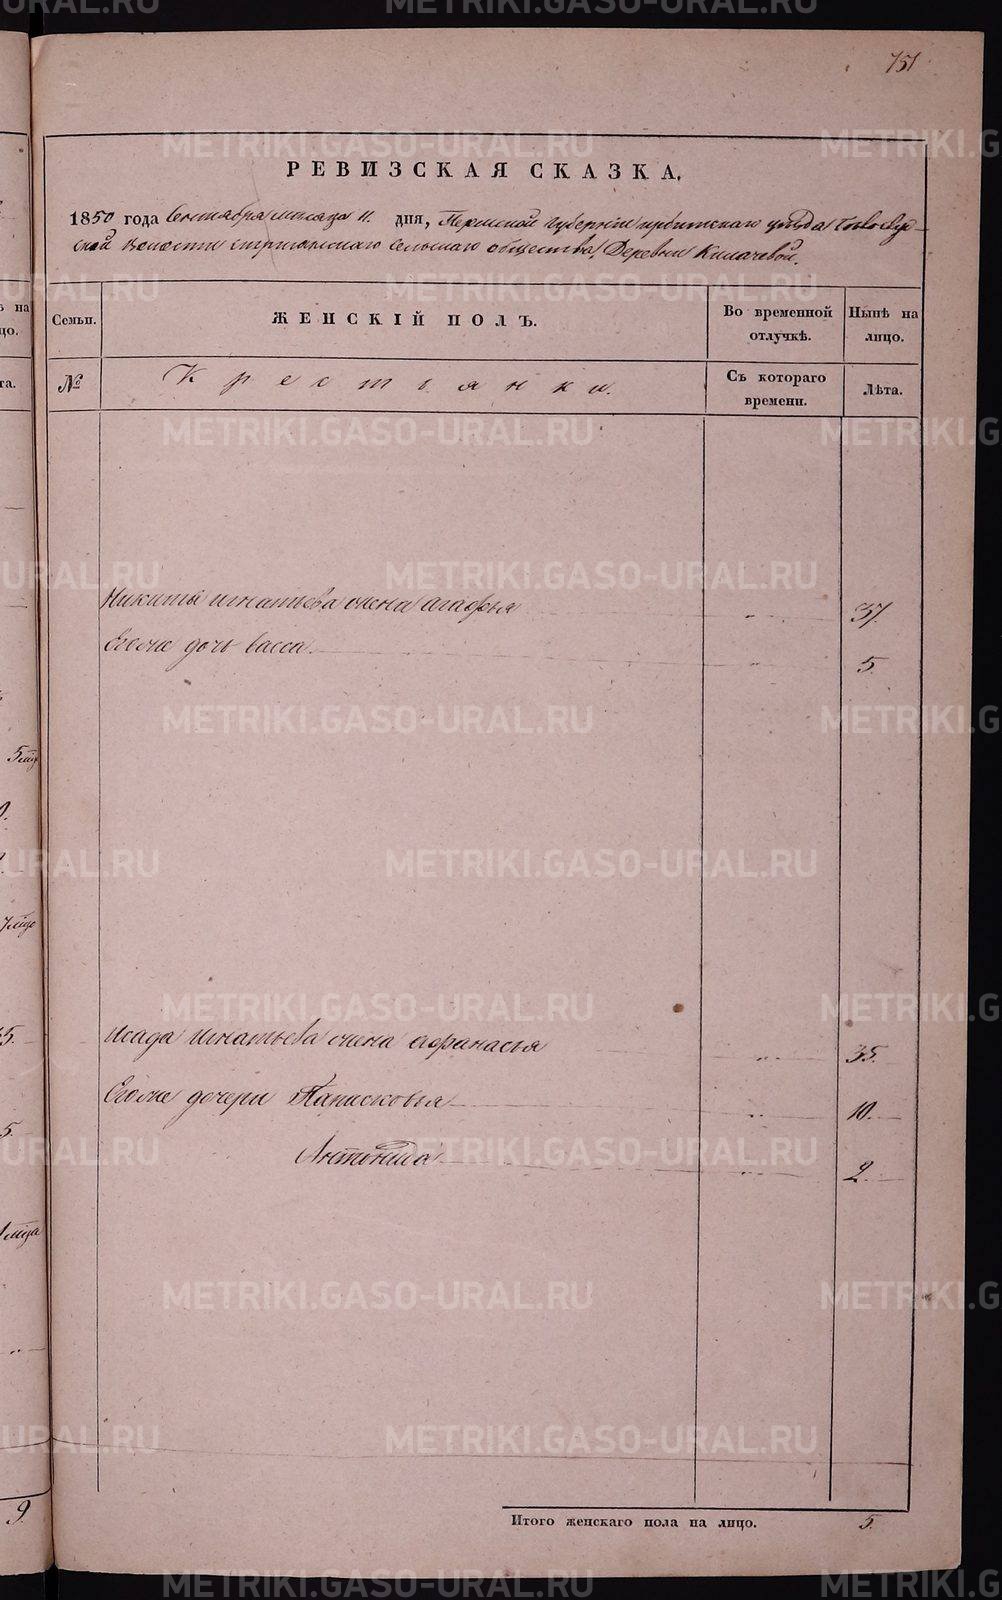 151
РЕВИЗСКАЯ СКАЗКА.
1850 года Сентября месяца 11. дня, Пермской Губернии ирбитскаго уезда
ской волости стриганскаго сельскаго общества, Деревни Килачевой.
Семьи. ЖЕНСКІЙ ПОЛЪ. Во временной отлучкѣ. Нынѣ на лицо.
№ Крестьянки. Съ котораго времени. Лѣта.
Никиты игнатьева жена агафья " 37.
Егоже дочь васса. " 5.
Исада Игнатьева жена афанасья " 35.
Егоже дочери Парасковья " 10.
Антонида " 2.
Итого женскаго пола на лицо. 5.
на
цо.
та.
5.
5.
9.
METRIKI.GASO-URAL.RU